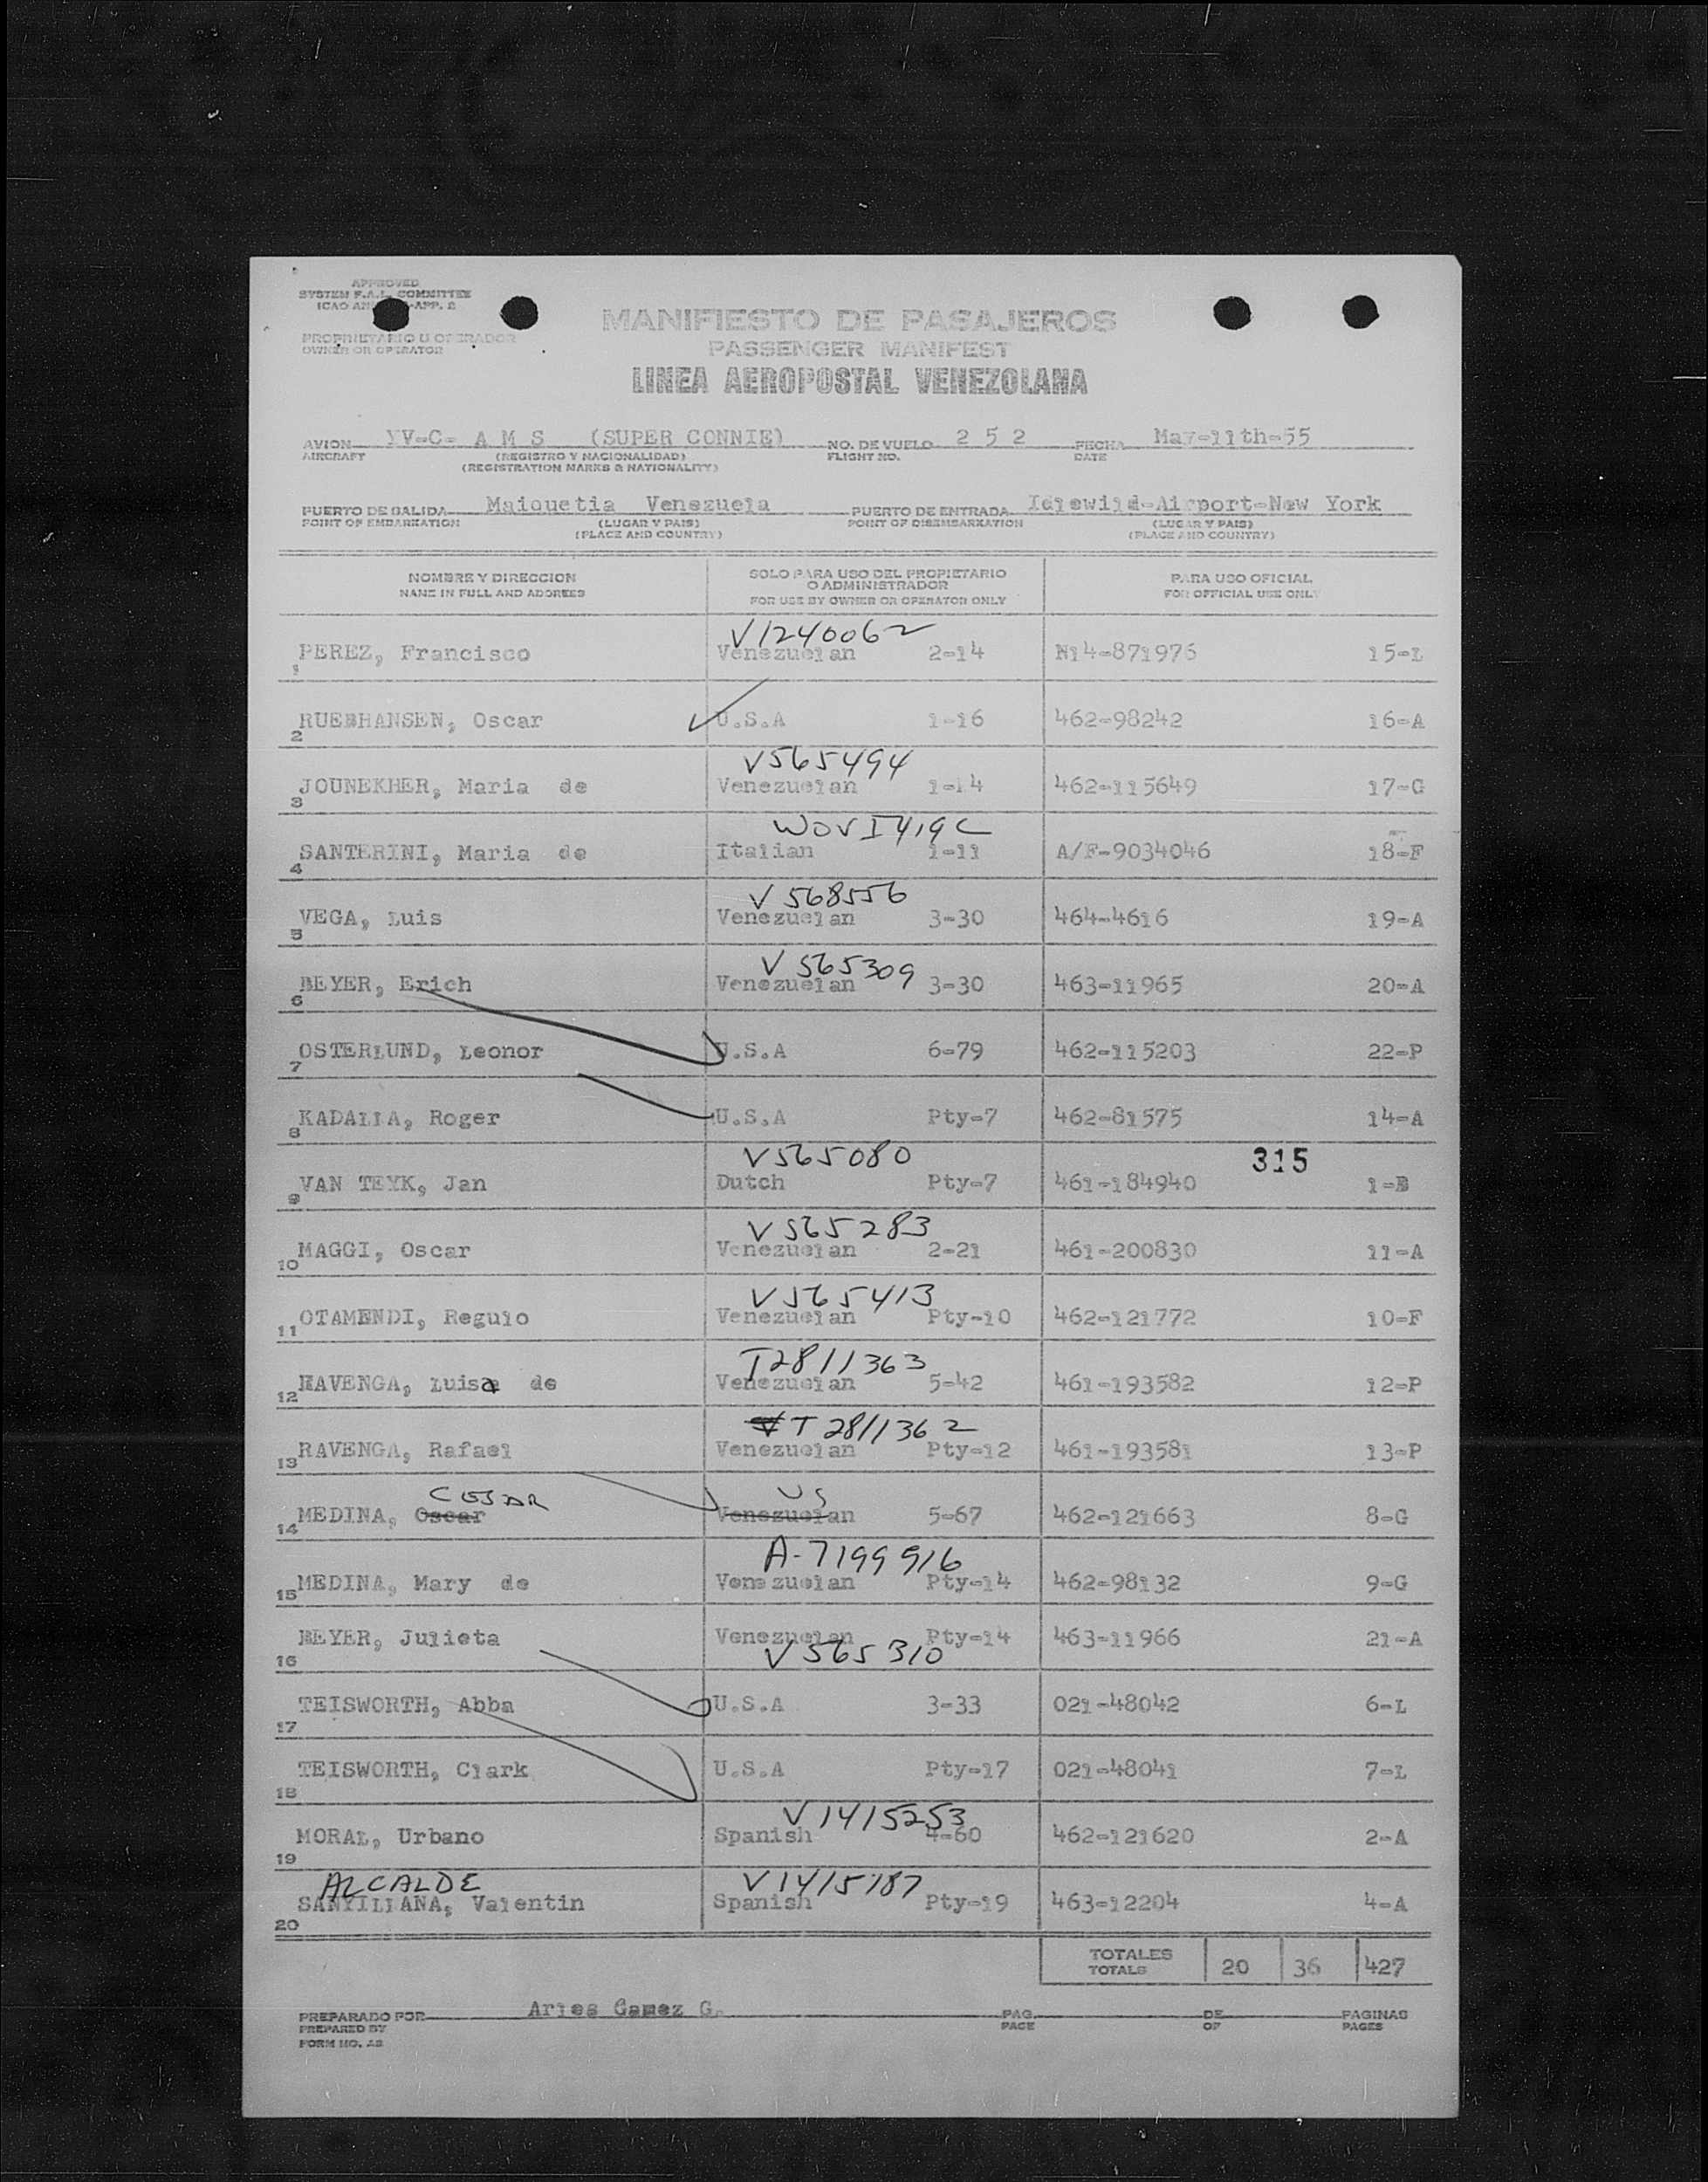 APPROVED
SYSTEM F.A.L. COMMITTEE
ICAO -APP. 2
PROPRIETARIO U OPERADOR
OWNER OR OPERATOR
MANIFIESTO DE PASAJEROS
PASSENGER MANIFEST
LINEA AEROPOSTAL VENEZOLANA
AVION YV-C- A M S (SUPER CONNIE) NO. DE VUELO 2 5 2 FECHA May-11th-55
AIRCRAFT (REGISTRO Y NACIONALIDAD) FLIGHT NO. DATE
(REGISTRATION MARKS & NATIONALITY)
PUERTO DE SALIDA Maiquetia Venezuela PUERTO DE ENTRADA Idlewild-Airport-New York
POINT OF EMBARKATION (LUGAR Y PAIS) POINT OF DISEMBARKATION (LUGAR Y PAIS)
(PLACE AND COUNTRY) (PLACE AND COUNTRY)
NOMBRE Y DIRECCION SOLO PARA USO DEL PROPIETARIO O ADMINISTRADOR PARA USO OFICIAL
NAME IN FULL AND ADDRESS FOR USE BY OWNER OR OPERATOR ONLY FOR OFFICIAL USE ONLY
V1240062
1 PEREZ, Francisco Venezuelan 2-14 N14-871976 15-L
2 RUEBHANSEN, Oscar U.S.A 1-16 462-98242 16-A
V565494
3 JOUNEKHER, Maria de Venezuelan 1-14 462-115649 17-G
WOV I419C
4 SANTERINI, Maria de Italian 1-11 A/F-9034046 18-F
V 568556
5 VEGA, Luis Venezuelan 3-30 464-4616 19-A
V 565309
6 BEYER, Erich Venezuelan 3-30 463-11965 20-A
7 OSTERLUND, Leonor U.S.A 6-79 462-115203 22-P
8 KADALLA, Roger U.S.A Pty-7 462-81575 14-A
V565080 315
9 VAN TEYK, Jan Dutch Pty-7 461-184940 1-B
V565283
10 MAGGI, Oscar Venezuelan 2-21 461-200830 11-A
V565413
11 OTAMENDI, Regulo Venezuelan Pty-10 462-121772 10-F
T2811363
12 RAVENGA, Luisa de Venezuelan 5-42 461-193582 12-P
V T 2811362
13 RAVENGA, Rafael Venezuelan Pty-12 461-193581 13-P
CESAR US
14 MEDINA, Oscar Venezuelan 5-67 462-121663 8-G
A-7199916
15 MEDINA, Mary de Venezuelan Pty-14 462-98132 9-G
16 BEYER, Julieta Venezuelan Pty-14 463-11966 21-A
V 565310
17 TEISWORTH, Abba U.S.A 3-33 021-48042 6-L
18 TEISWORTH, Clark U.S.A Pty-17 021-48041 7-L
V1415253
19 MORAL, Urbano Spanish 4-60 462-121620 2-A
ALCALDE V1415187
20 SANTILLANA, Valentin Spanish Pty-19 463-12204 4-A
TOTALES 20 36 427
TOTALS
PREPARADO POR Aries Gamez G. PAG. DE PAGINAS
PREPARED BY PAGE OF PAGES
FORM NO.